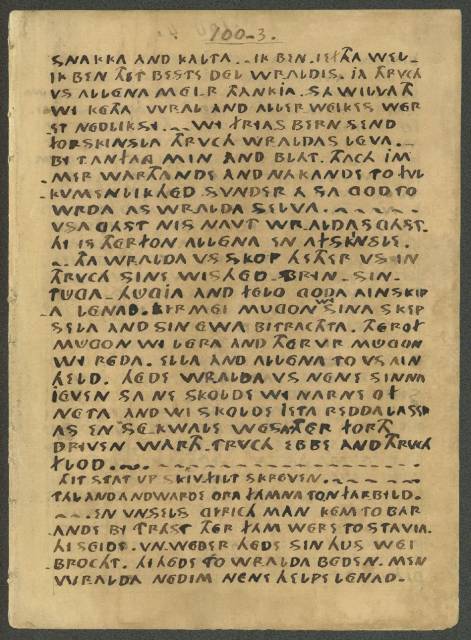 100_3.
SNAKKA AND KALTA. IK BEN. IEFTHA WEL.
IK BEN THET BESTE DEL WRALDIS. IA THRVCH
VS ALLENA MEI.R THANKIA. SA WILLATH
WI KETHA WRAL AND ALLERWEIKES WER
ET NEDLIK SY. WY FRYAS BERN SEND
FORSKINSLA THRVCH WRALDAS LEVA.
BY T ANFANG MIN AND BLAT. THACH IM
MER WARTHANDE AND NAKANDE TO FUL
KVMENLIKHED. SVNDER A SA GOD TO
WRDA AS WRALDA SELVA.
VSA GAST NIS NAVT WRALDAS GAST.
HI IS THERFON ALLENA EN AFSKINSLE.
THA WRALDA VS SKOP HETHER VS IN
THRVCH SINE WISHED. BRIN. SIN-
TUGA. HUGIA AND FELO GODA AINSKIP
A LENAD. HIRMEI MUGON WI SINA SKEP
SELA AND SIN EWA BITRACHTA. THEROF
MUGON WI LERA AND THERVR MUGON
WI REDA. ELLA AND ALLENA TO VS AIN
HELD. HEDE WRALDA VS NENE SINNA
IEVEN SA NE SKOLDE WI NARNE OF
NETA AND WI SKOLDE IETA REDDALASER
AS EN SEKWALE WESA THER FORTH
DRIVEN WARTH. THRVCH EBBE AND THRVCH
FLOD.
THIT STAT UP SKRIVFILT SKREVEN.
TAL AND ANDWARDE ORA FAMNA TO N FARBILD.
EN UNSELS GYRICH MAN KEM TO BAR
ANDE BY TRAST THER FAM WERE TO STAVIA.
HI SEIDE. VNWEDER HEDE SIN HUS WEI
BROCHT. HI HEDE TO WRALDA BEDEN. MEN
WRALDA NEDIM NENE HELPE LENAD.